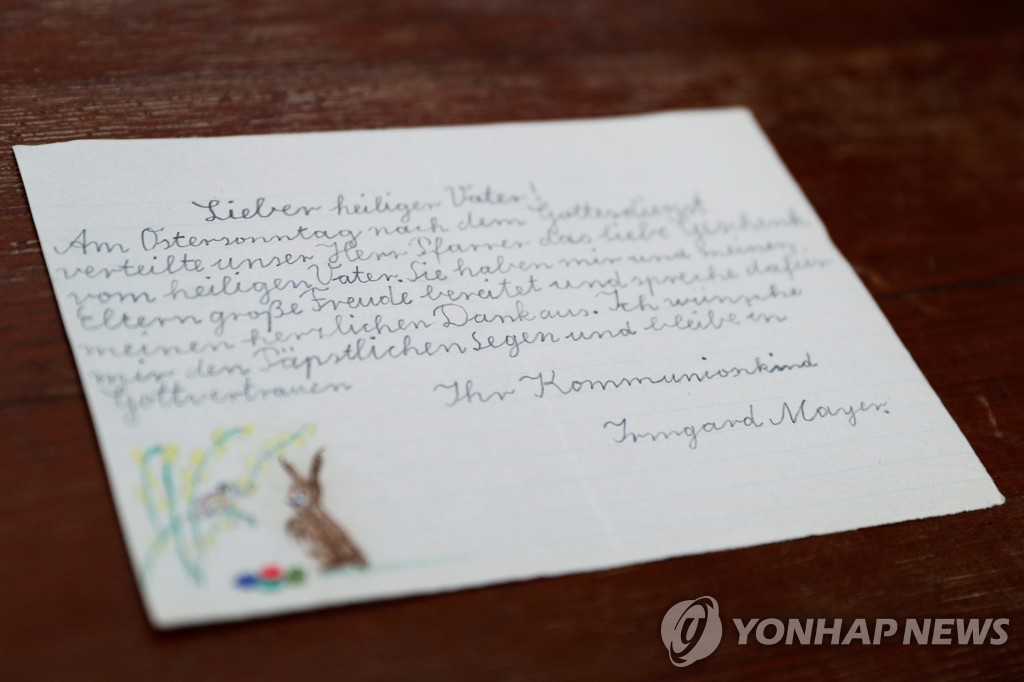 Lieber heiliger Vater!
Am Ostersonntag nach dem Gottesdienst
verteilte unser Herr Pfarrer das liebe Geschenk
vom heiligen Vater. Sie haben mir und meinen
Eltern große Freude bereitet und spreche dafür
meinen herzlichen Dank aus. Ich wünsche
mir den Päpstlichen Segen und bleibe in
Gottvertrauen
Ihr Kommunionkind
Irmgard Mayer.
YONHAP NEWS